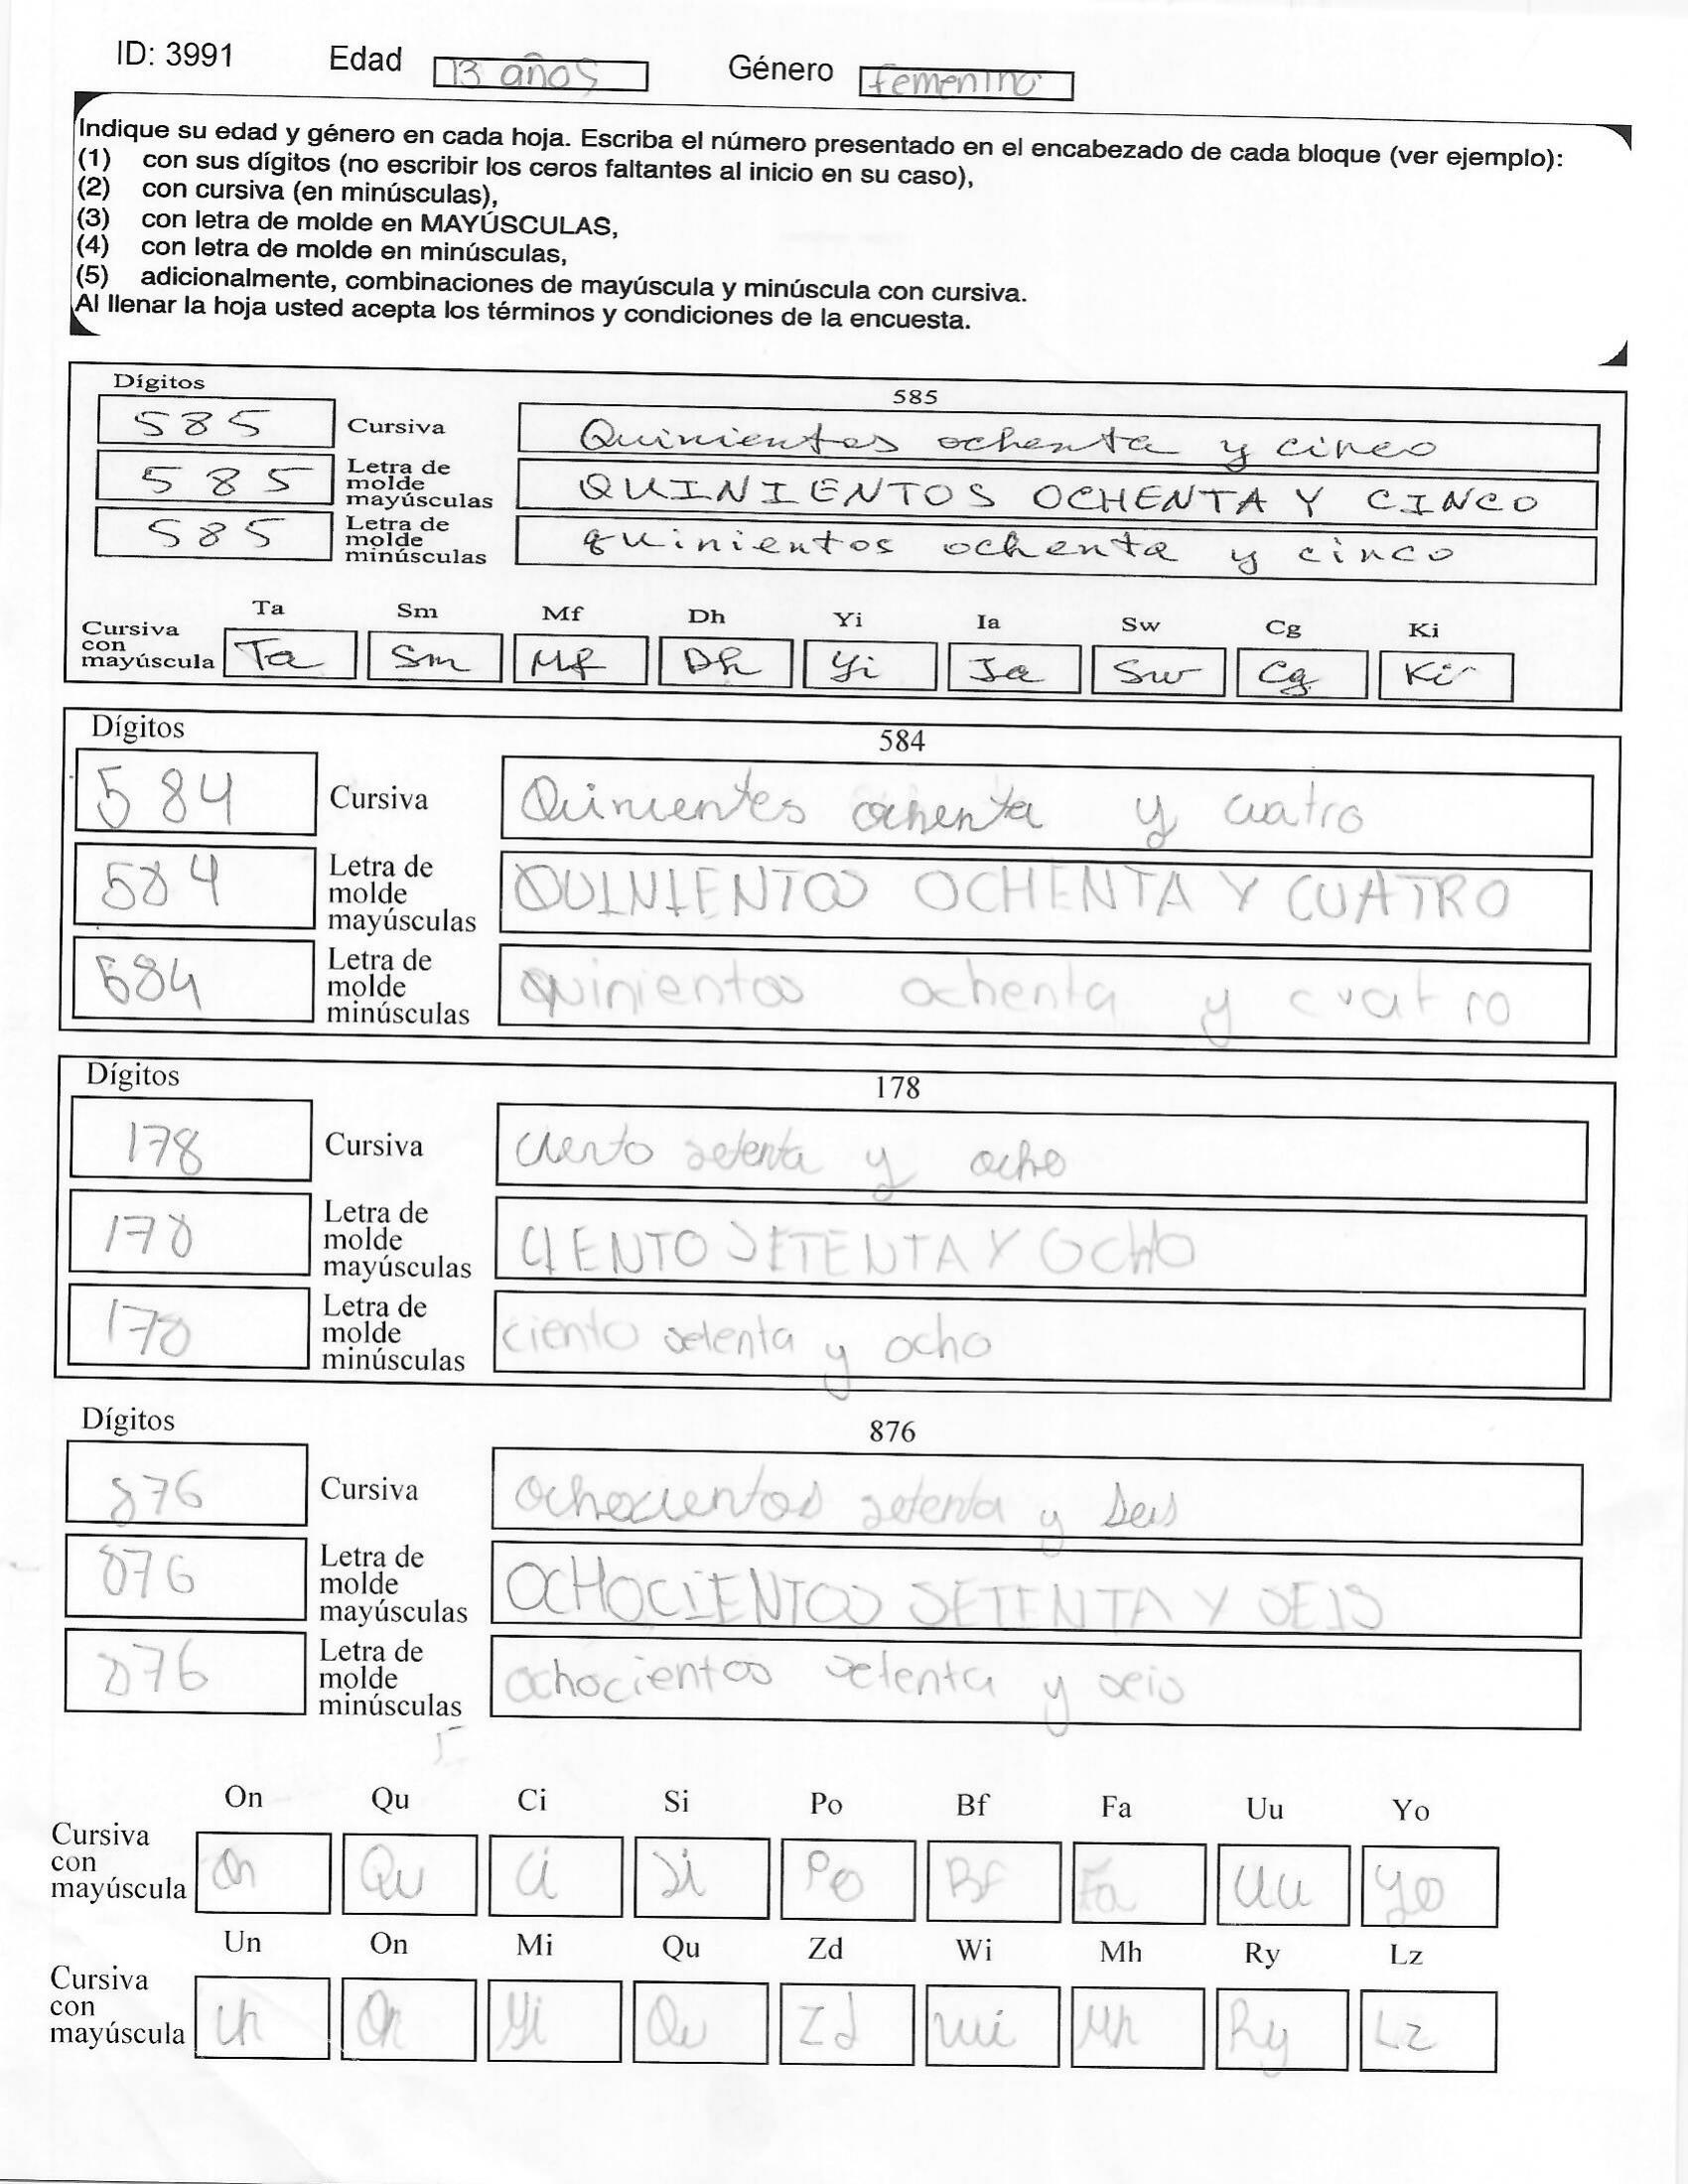 ID: 3991 Edad 13 años Género femenino
Indique su edad y género en cada hoja. Escriba el número presentado en el encabezado de cada bloque (ver ejemplo):
(1) con sus dígitos (no escribir los ceros faltantes al inicio en su caso),
(2) con cursiva (en minúsculas),
(3) con letra de molde en MAYÚSCULAS,
(4) con letra de molde en minúsculas,
(5) adicionalmente, combinaciones de mayúscula y minúscula con cursiva.
Al llenar la hoja usted acepta los términos y condiciones de la encuesta.
Dígitos 585
585 Cursiva Quinientos ochenta y cinco
585 Letra de molde mayúsculas QUINIENTOS OCHENTA Y CINCO
585 Letra de molde minúsculas quinientos ochenta y cinco
Ta Sm Mf Dh Yi Ia Sw Cg Ki
Cursiva con mayúscula Ta Sm Mf Dh Yi Ia Sw Cg Ki
Dígitos 584
584 Cursiva Quinientes ochenta y cuatro
584 Letra de molde mayúsculas QUINIENTOS OCHENTA Y CUATRO
584 Letra de molde minúsculas quinientos ochenta y cuatro
Dígitos 178
178 Cursiva ciento setenta y ocho
178 Letra de molde mayúsculas CIENTO SETENTA Y OCHO
178 Letra de molde minúsculas ciento setenta y ocho
Dígitos 876
876 Cursiva ochocientos setenta y seis
876 Letra de molde mayúsculas OCHOCIENTOS SETENTA Y SEIS
876 Letra de molde minúsculas ochocientos setenta y seis
On Qu Ci Si Po Bf Fa Uu Yo
Cursiva con mayúscula On Qu Ci Si Po Bf Fa Uu Yo
Un On Mi Qu Zd Wi Mh Ry Lz
Cursiva con mayúscula Un On Mi Qu Zd Wi Mh Ry Lz